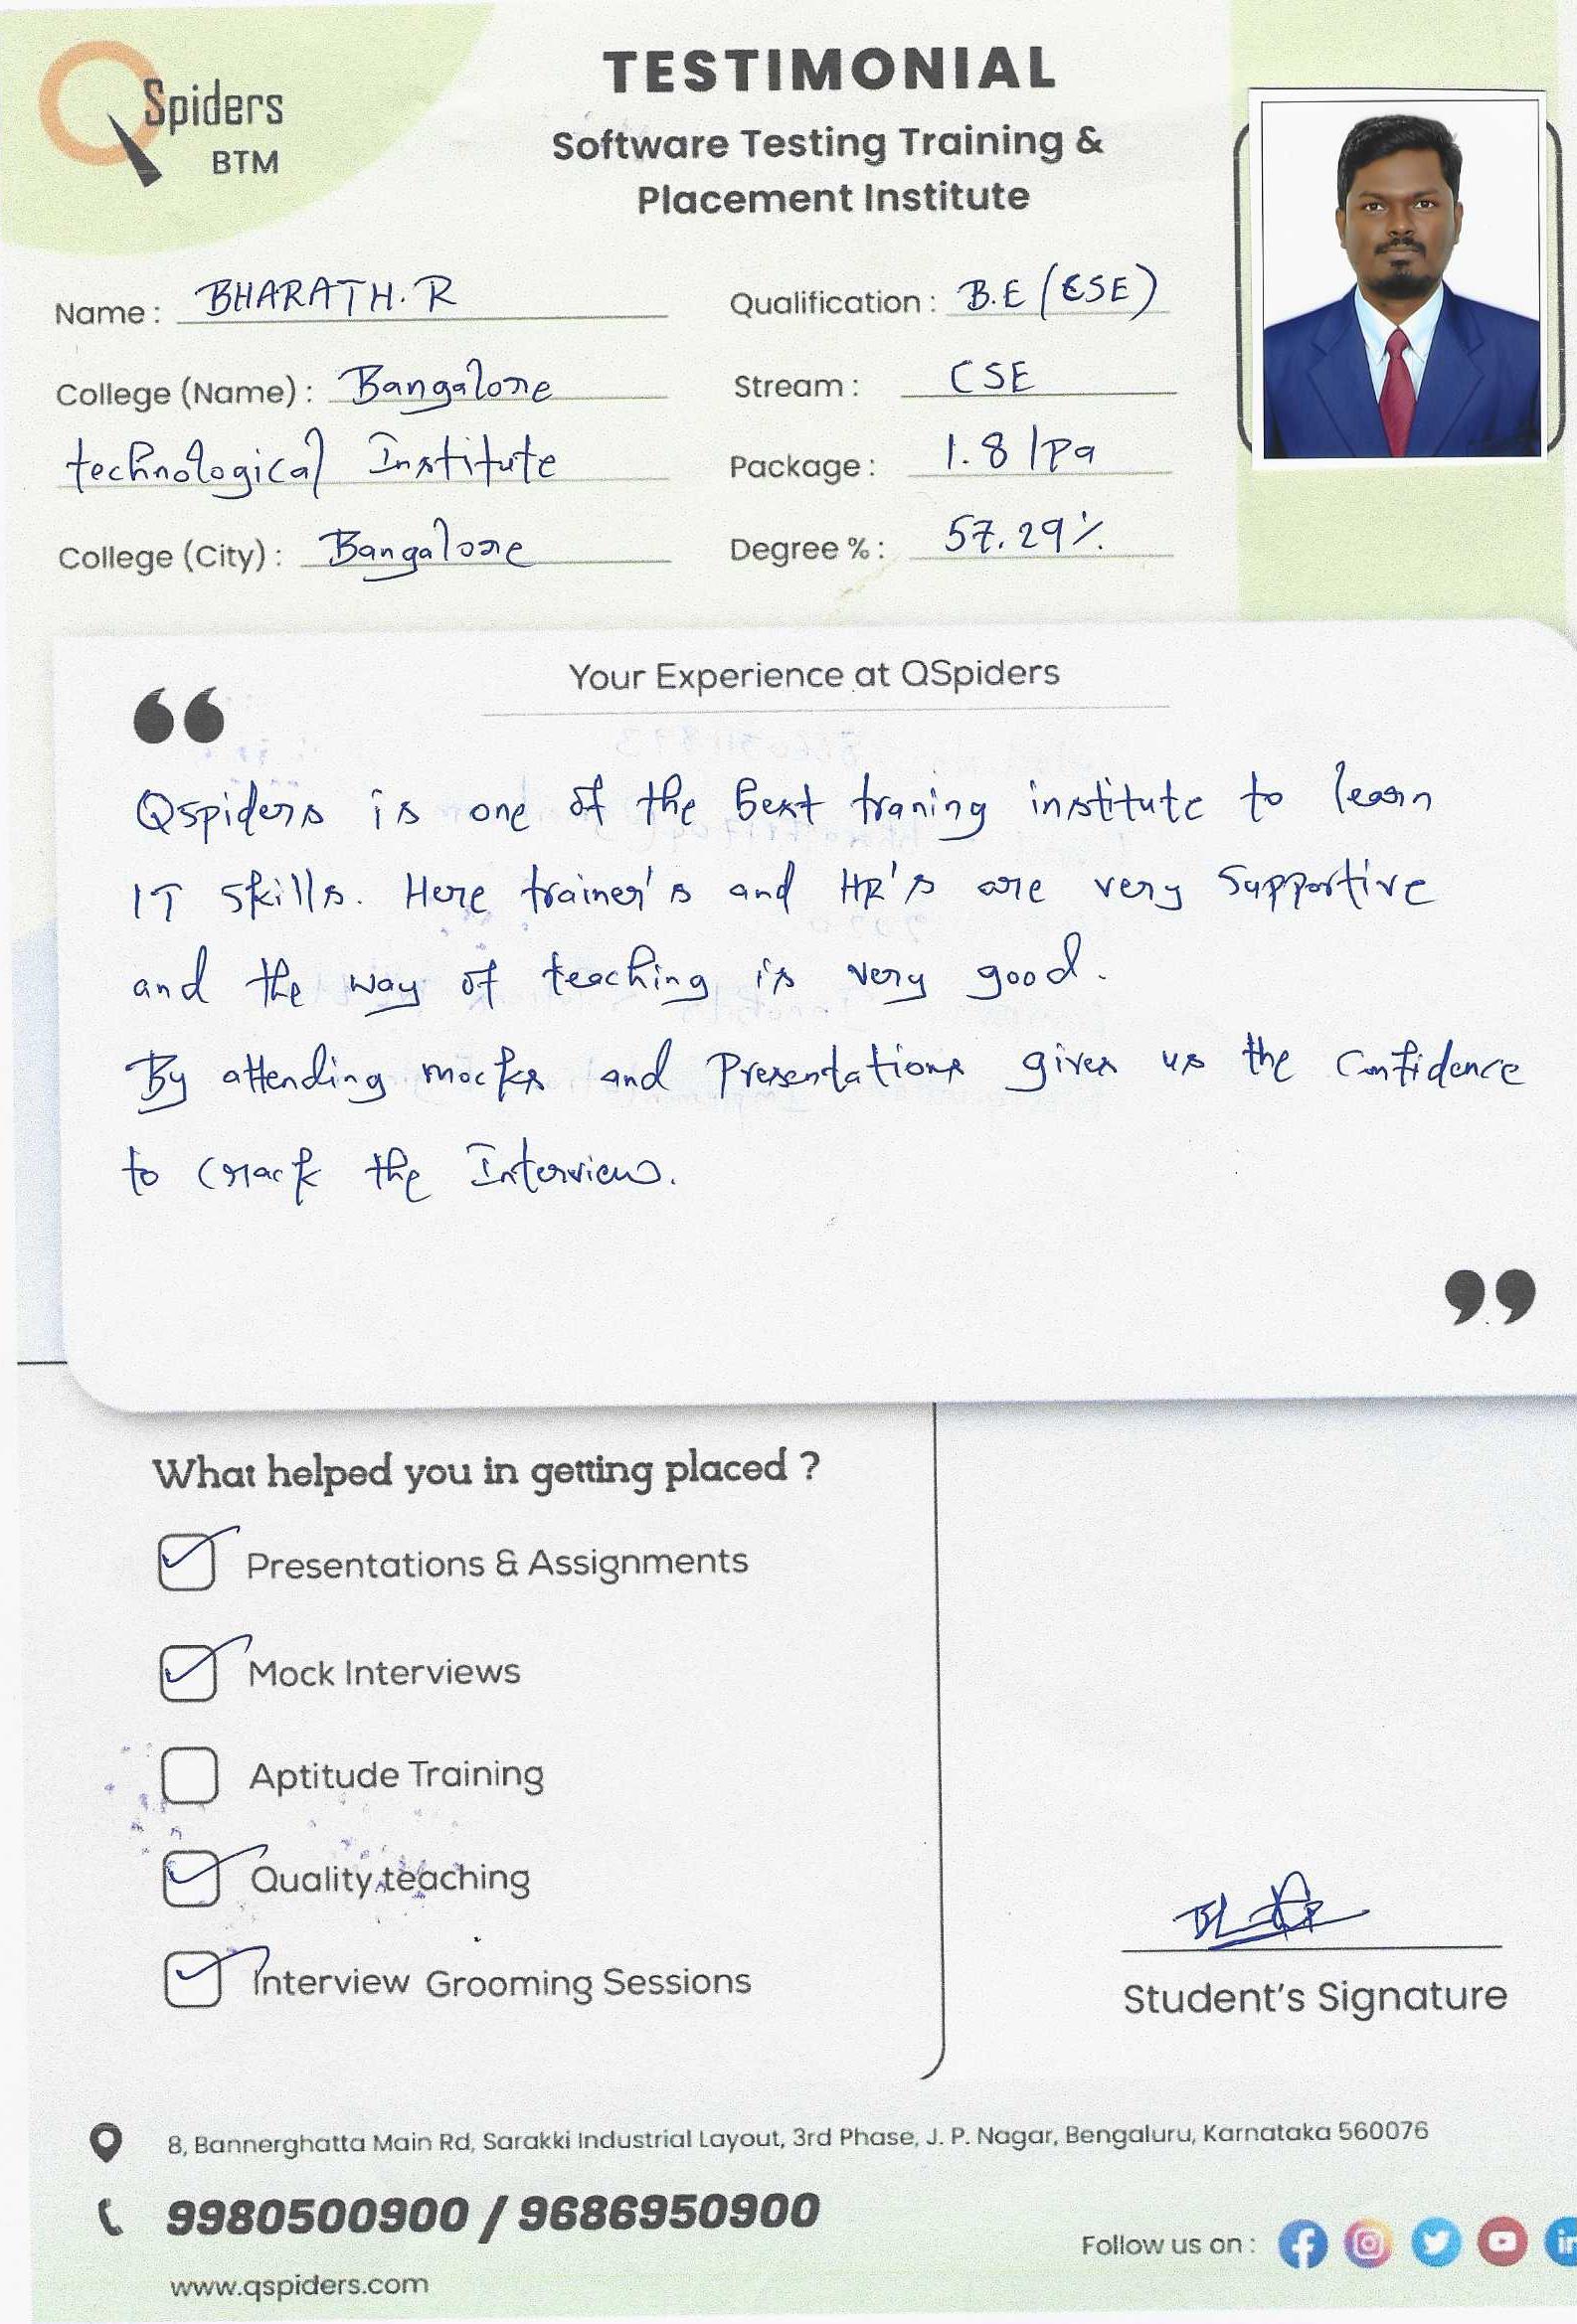 QSpiders
BTM
TESTIMONIAL
Software Testing Training &
Placement Institute
Name : BHARATH.R
Qualification : B.E (CSE)
College (Name) : Bangalore
Stream : CSE
technological Institute
Package : 1.8 lpa
College (City) : Bangalore
Degree % : 57.29%
Your Experience at QSpiders
“
Qspiders is one of the best traning institute to learn
IT skills. Here trainer's and HR's are very supportive
and the way of teaching is very good.
By attending mocks and Presentations gives us the Confidence
to crack the Interview.
”
What helped you in getting placed ?
Presentations & Assignments
Mock Interviews
Aptitude Training
Quality teaching
Interview Grooming Sessions
Student's Signature
8, Bannerghatta Main Rd, Sarakki Industrial Layout, 3rd Phase, J. P. Nagar, Bengaluru, Karnataka 560076
9980500900 / 9686950900
Follow us on :
www.qspiders.com